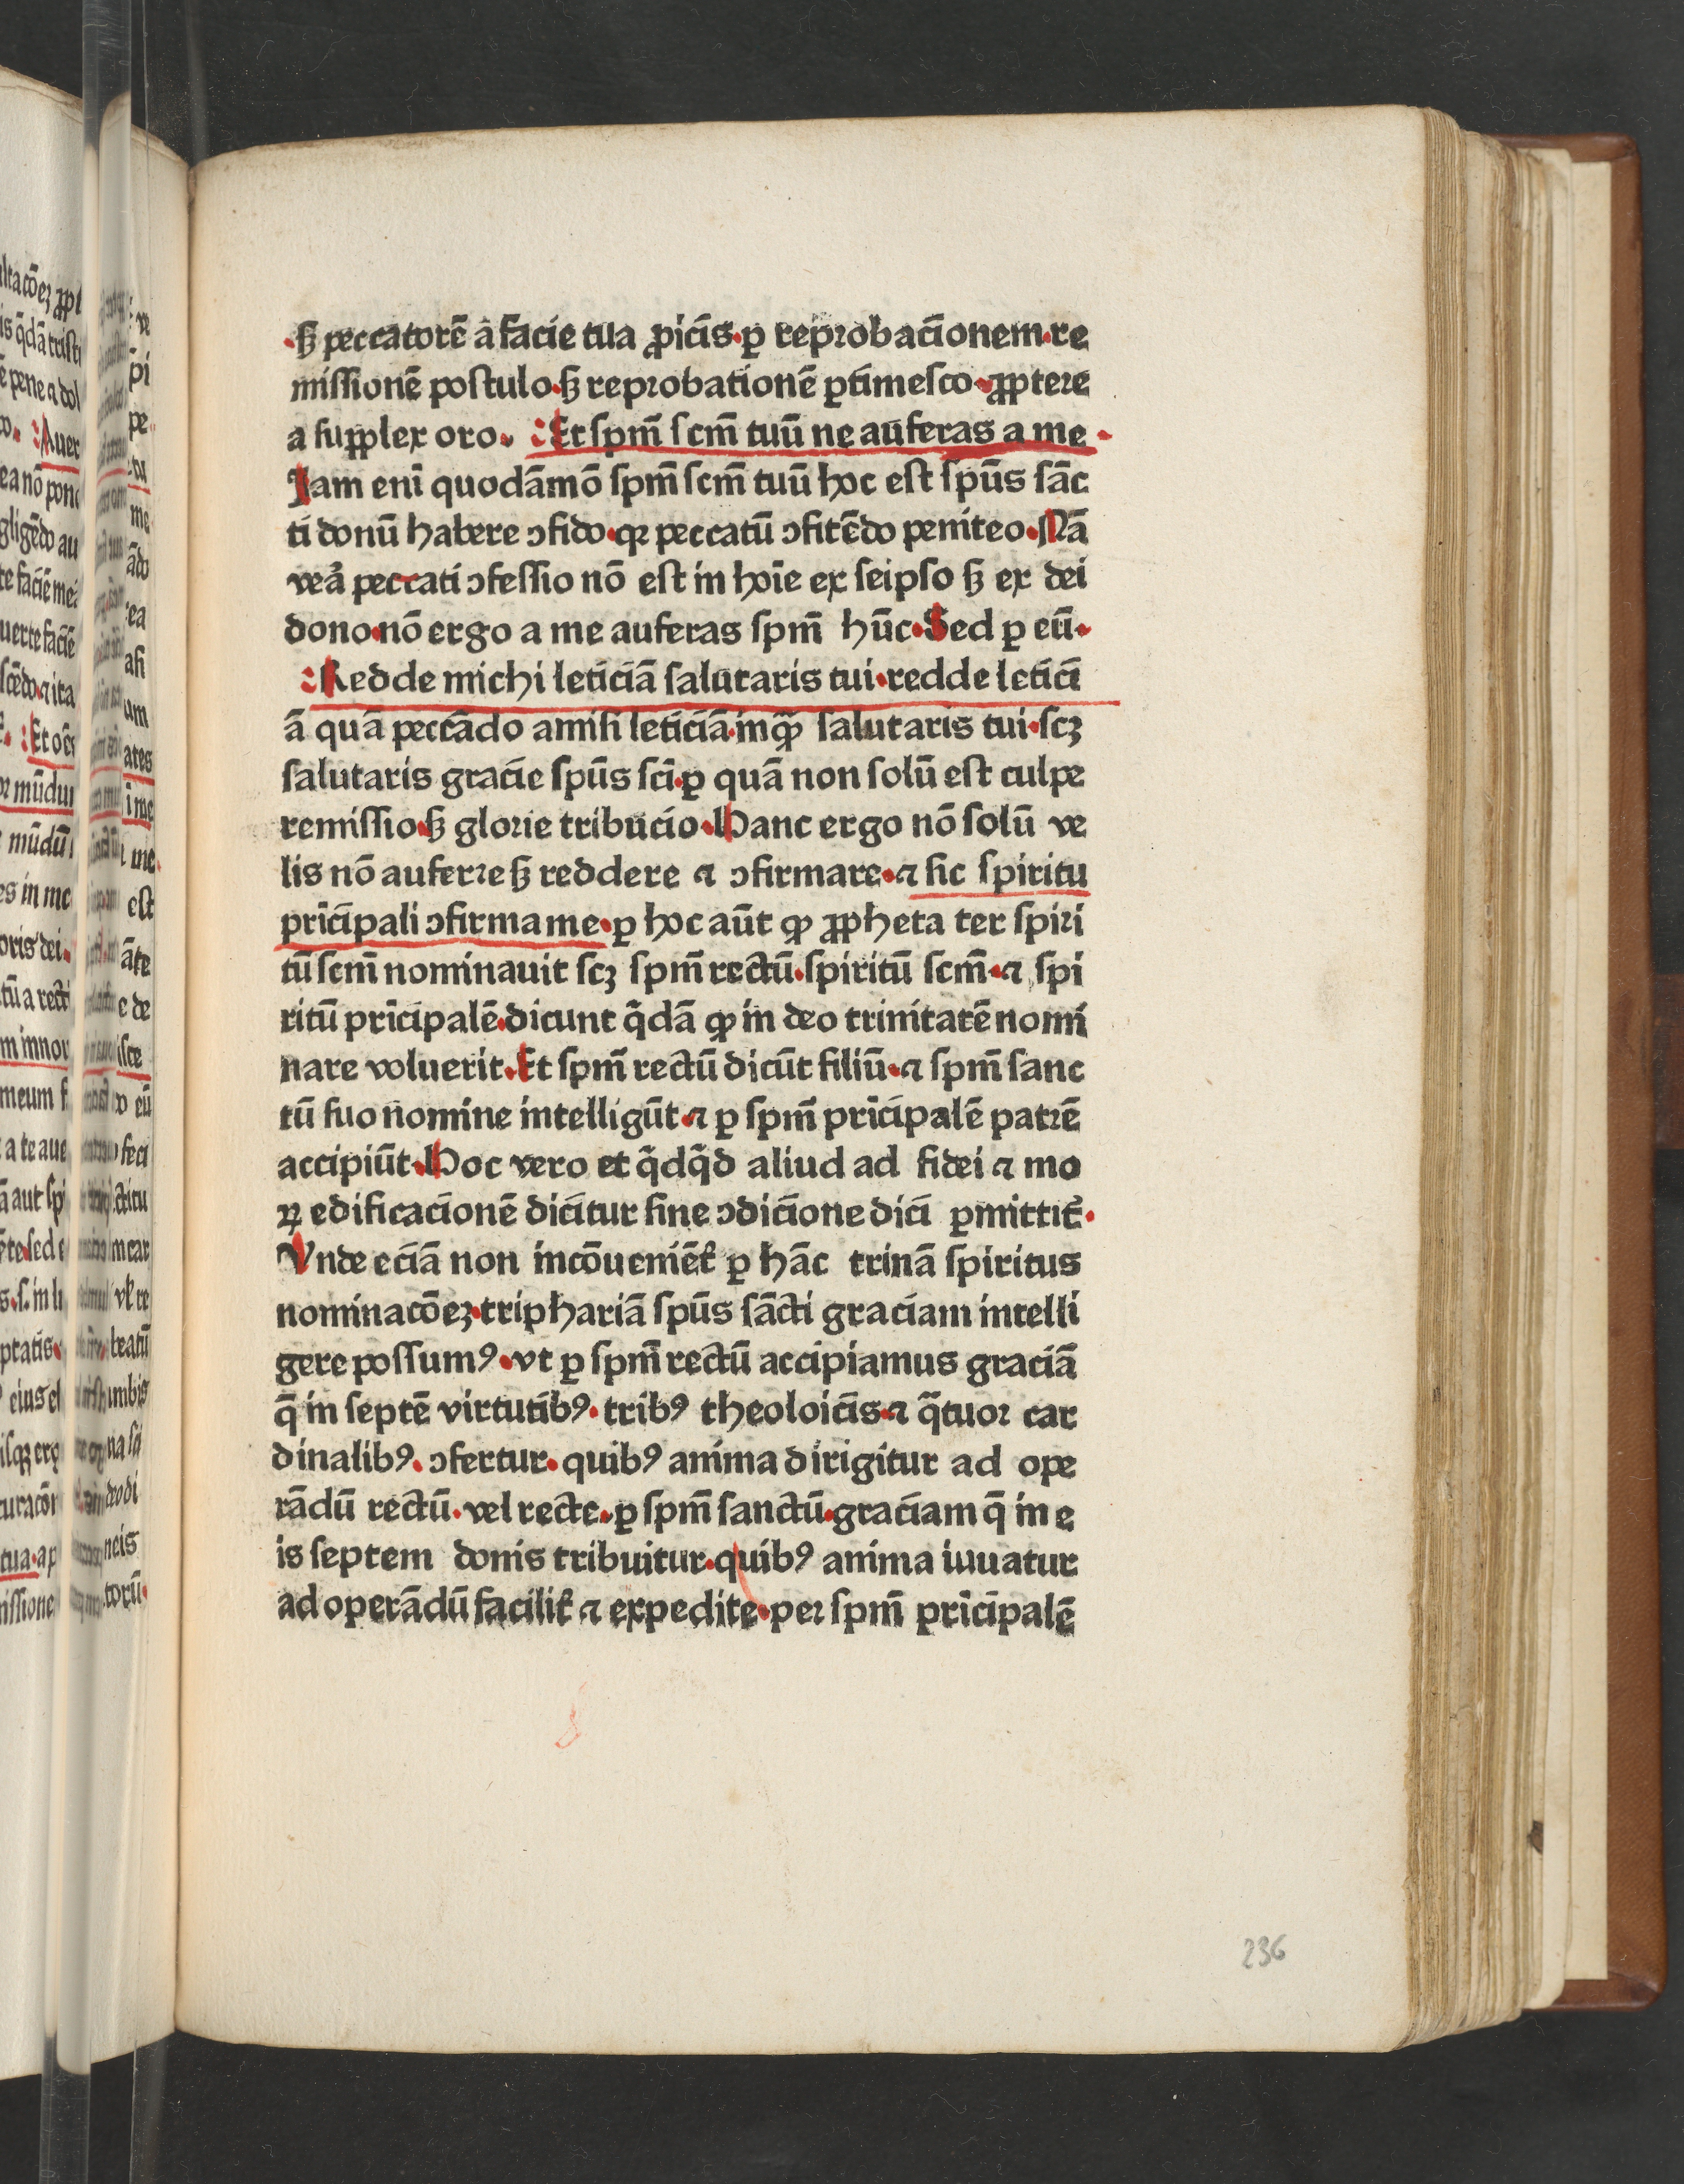 ·ꝫ peccatorē a facie tua ꝓicis·ꝑ reprobacionem·re
missionē postulo·sꝫ reprobationē ꝑtimesco·ꝓptere
a supplex oro· Et spm̄ scm̄ tuū ne auferas a me·
Jam eni quodāmō spm̄ scm̄ tuū hoc est spūs sāc
ti donū habere ↄfido·qꝛ peccatū ↄfitēdo peniteo·Nā
vea̓ peccati ↄfessio nō est in hoīe ex seipso sꝫ ex dei
dono·nō ergo a me auferas spm̄ hūc·Sed ꝑ eū·
Redde michi leticiā salutaris tui·redde letici
ā quā peccādo amisi leticiā·inqͣꝫ salutaris tui·scꝫ
salutaris gracie spūs sci·ꝑ quā non solū est culpe
remissio·sꝫ glorie tribucio·Hanc ergo nō solū ve
lis nō auferre sꝫ reddere ⁊ ↄfirmare·⁊ sic spiritu
pricipali ↄfirma me·ꝑ hoc aūt ꝙ ꝓpheta ter spiri
tū scm̄ nominauit scꝫ spm̄ rectū·spiritū scm̄·⁊ spi
ritū pricipalē·dicunt q̄dā ꝙ in deo trinitatē nomi
nare voluerit·Et spm̄ rectū dicūt filiū·⁊ spm̄ sanc
tū suo nomine intelligūt·⁊ ꝑ spm̄ pricipalē patrē
accipiūt·Hoc vero et q̄dq̄d aliud ad fidei ⁊ mo
ꝝ edificacionē dicitur sine ↄdicione dici ꝑmittit᷑·
Vnde eciā non incōueniēt᷑ ꝑ hāc trinā spiritus
nominacōeꝫ·triphariā spūs sācti graciam intelli
gere possumꝰ·vt ꝑ spm̄ rectū accipiamus graciā
q̄ in septē virtutibꝰ·tribꝰ theoloicis·⁊ qͣtuor car
dinalibꝰ·ↄfertur·quibꝰ anima dirigitur ad ope
rādū rectū·vel recte·ꝑ spm̄ sanctū·graciam q̄ in e
is septem donis tribuitur·quibꝰ anima iuuatur
ad operādū facilit᷑ ⁊ expedite·per spm̄ pricipalē
236